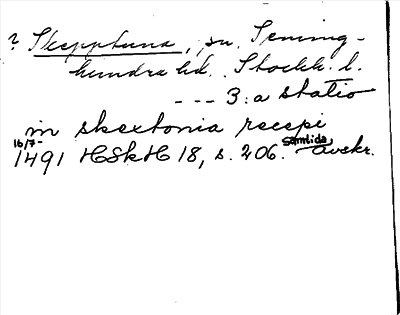 ? Skepptuna, sn. Seming-
hundra hd. Stockh. l.
--- 3:a statio
in skextonia recepi
16/7- 1491 HSkH 18, s. 206. samtida avskr.